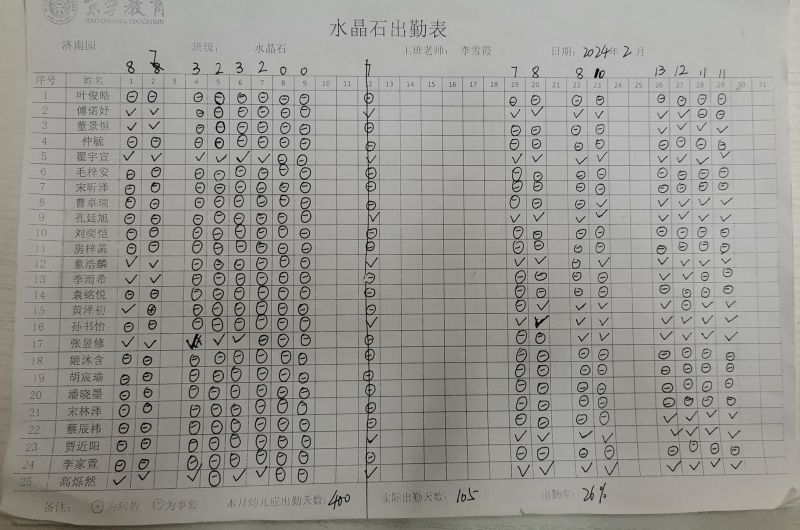 京学教育
JING COLLEGE EDUCATION
水晶石出勤表
济南园 班级: 水晶石 上班老师: 李雪霞 日期: 2024年2月
8 7 3 2 3 2 0 0 7 7 8 8 10 13 12 11 11
序号 姓名 1 2 3 4 5 6 7 8 9 10 11 12 13 14 15 16 17 18 19 20 21 22 23 24 25 26 27 28 29 30 31
1 叶俊皓
2 傅偌妤 ✓ ✓ ✓ ✓ ✓ ✓ ✓ ✓ ✓
3 董景恒
4 仲毓
5 翟宇宣
6 毛梓安
7 宋昕泽
8 曹卓瑞
9 孔廷旭
10 刘奕恺
11 房梓菡
12 童浩麟
13 李雨希
14 袁铭悦
15 黄泽初
16 孙书怡
17 张昱修
18 姬沐含
19 胡宸瑜
20 潘晓墨
21 宋林泽
22 蔡辰祎
23 贾近阳
24 李家萱
25 高烁然
备注: 为病假 为事假 本月幼儿应出勤天数: 400 实际出勤天数: 105 出勤率: 26%